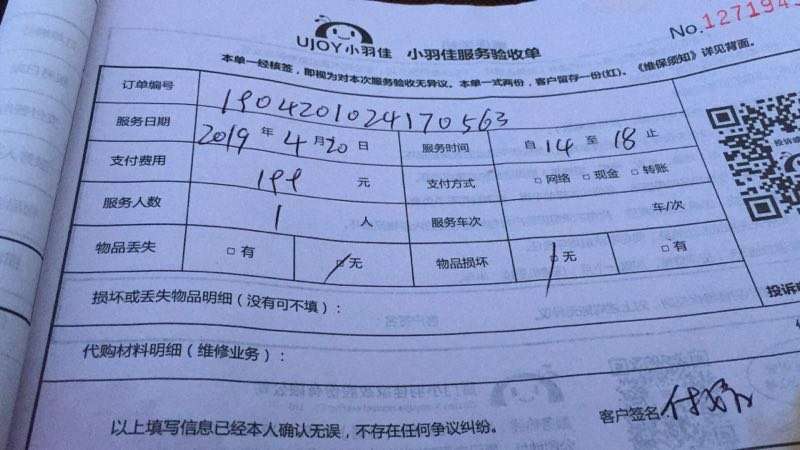 UJOY小羽佳 小羽佳服务验收单
No.127194
本单一经核签，即视为对本次服务验收无异议。本单一式两份，客户留存一份(红)。《维保须知》详见背面。
订单编号 1904201024170563
服务日期 2019 年 4 月 20 日 服务时间 自 14 至 18 止
支付费用 199 元 支付方式 □ 网络 □ 现金 □ 转账
服务人数 1 人 服务车次 车/次
物品丢失 □ 有 □ 无 物品损坏 □ 无 □ 有
损坏或丢失物品明细（没有可不填）：
代购材料明细（维修业务）：
客户签名：
以上填写信息已经本人确认无误，不存在任何争议纠纷。